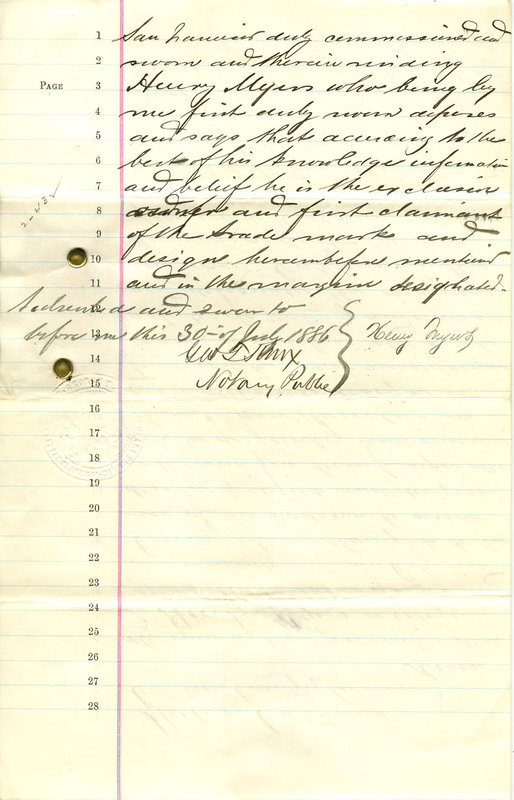 1 San Francisco duly commissioned and
2 sworn and therein residing
PAGE 3 Henry Myers who being by
4 me first duly sworn deposes
5 and says that according to the
6 best of his knowledge information
7 and belief he is the exclusive
8 owner and first claimant
9 of the trade marks and
10 design hereinbefore mentioned
11 and in the margin designated.
12 Subscribed and sworn to
13 before me this 30th of July 1886 Henry Myers
14 Geo T Knox
15 Notary Public
16
17
18
19
20
21
22
23
24
25
26
27
28